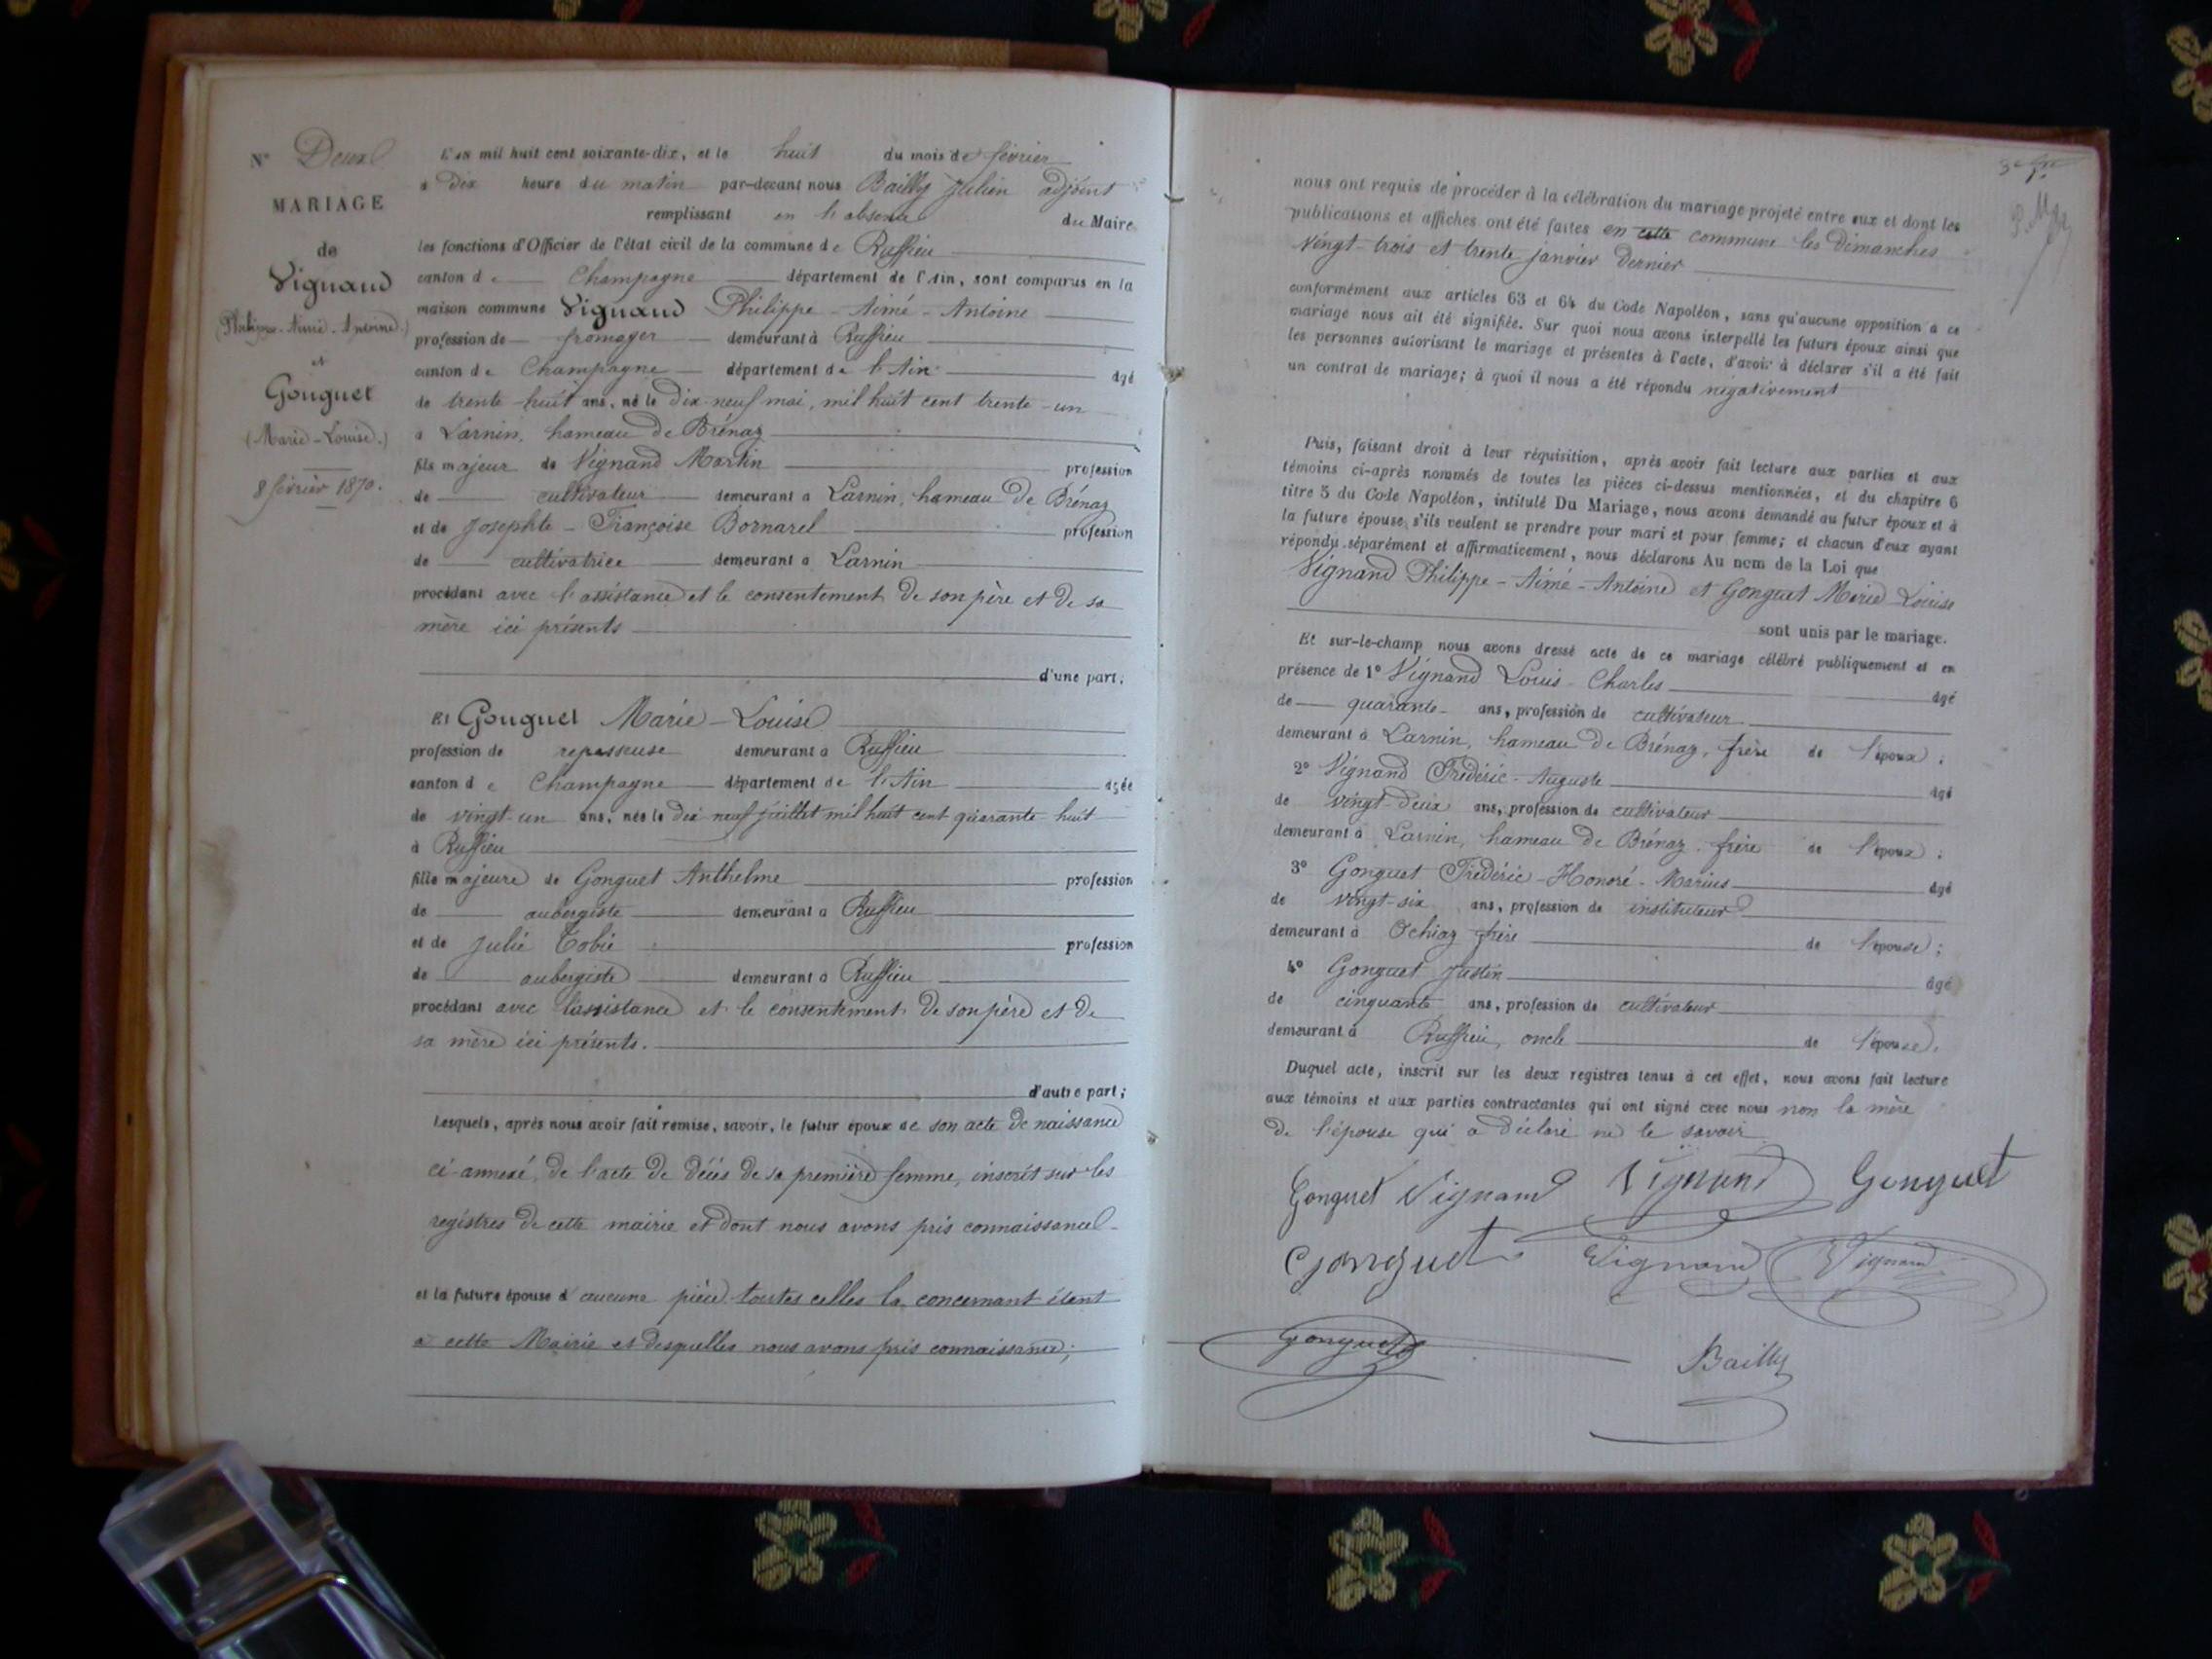 N° Deux
MARIAGE
de
Vignand
(Philippe-Aimé-Antoine.)
et
Gonguet
(Marie-Louise.)
8 février 1870.
L'an mil huit cent soixante-dix, et le huit du mois de février
à dix heure du matin par-devant nous Bailly Julien adjoint
remplissant en l'absence du Maire
les fonctions d'Officier de l'état civil de la commune de Ruffieu
canton de Champagne département de l'Ain, sont comparus en la
maison commune Vignand Philippe-Aimé-Antoine
profession de fromager demeurant à Ruffieu
canton de Champagne département de l'Ain âgé
de trente-huit ans, né le dix-neuf mai, mil huit cent trente-un
à Larnin, hameau de Brénaz
fils majeur de Vignand Martin profession
de cultivateur demeurant à Larnin, hameau de Brénaz
et de Josephte-Françoise Bornarel profession
de cultivatrice demeurant à Larnin
procédant avec l'assistance et le consentement de son père et de sa
mère ici présents
d'une part;
Et Gonguet Marie-Louise
profession de repasseuse demeurant à Ruffieu
canton de Champagne département de l'Ain âgée
de vingt-un ans, née le dix-neuf juillet mil huit cent quarante-huit
à Ruffieu
fille majeure de Gonguet Anthelme profession
de aubergiste demeurant à Ruffieu
et de Julie Tobie profession
de aubergiste demeurant à Ruffieu
procédant avec l'assistance et le consentement de son père et de
sa mère ici présents.
d'autre part;
Lesquels, après nous avoir fait remise, savoir, le futur époux de son acte de naissance
ci-annexé, de l'acte de décès de sa première femme, inscrit sur les
registres de cette mairie et dont nous avons pris connaissance
et la future épouse d'aucune pièce toutes celles la concernant étant
à cette Mairie et desquelles nous avons pris connaissance;
nous ont requis de procéder à la célébration du mariage projeté entre eux et dont les
publications et affiches ont été faites en cette commune les dimanches
vingt-trois et trente janvier dernier
conformément aux articles 63 et 64 du Code Napoléon, sans qu'aucune opposition à ce
mariage nous ait été signifiée. Sur quoi nous avons interpellé les futurs époux ainsi que
les personnes autorisant le mariage et présentes à l'acte, d'avoir à déclarer s'il a été fait
un contrat de mariage; à quoi il nous a été répondu négativement
Puis, faisant droit à leur réquisition, après avoir fait lecture aux parties et aux
témoins ci-après nommés de toutes les pièces ci-dessus mentionnées, et du chapitre 6
titre 5 du Code Napoléon, intitulé Du Mariage, nous avons demandé au futur époux et à
la future épouse, s'ils veulent se prendre pour mari et pour femme; et chacun d'eux ayant
répondu séparément et affirmativement, nous déclarons Au nom de la Loi que
Vignand Philippe-Aimé-Antoine et Gonguet Marie Louise
sont unis par le mariage.
Et sur-le-champ nous avons dressé acte de ce mariage célébré publiquement et en
présence de 1° Vignand Louis-Charles âgé
de quarante ans, profession de cultivateur
demeurant à Larnin, hameau de Brénaz, frère de l'époux;
2° Vignand Frédéric-Auguste âgé
de vingt-deux ans, profession de cultivateur
demeurant à Larnin, hameau de Brénaz frère de l'époux;
3° Gonguet Frédéric-Honoré-Marius âgé
de vingt-six ans, profession de instituteur
demeurant à Ochiaz frère de l'épouse;
4° Gonguet Justin âgé
de cinquante ans, profession de cultivateur
demeurant à Ruffieu, oncle de l'épouse.
Duquel acte, inscrit sur les deux registres tenus à cet effet, nous avons fait lecture
aux témoins et aux parties contractantes qui ont signé avec nous non la mère
de l'épouse qui a déclaré ne le savoir
Gonguet Vignand Vignand Gonguet
Gonguet Vignand Vignand
Gonguet Bailly